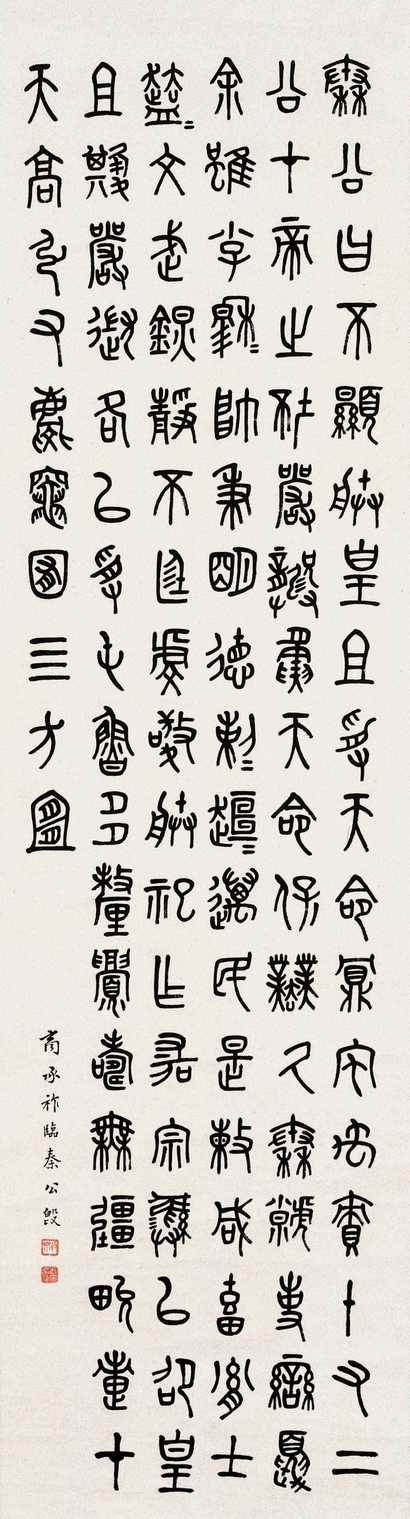 秦公曰不顯朕皇且受天命鼏宅禹賁十又二
公才帝之坯嚴龏夤天命保業氒秦虩事蠻夏
余雖小子穆=帥秉明德剌=趄=邁民是敕咸畜胤士
盍=文武銀靜不廷虔敬朕祀乍宗彝以卲皇
且嚴各以受屯魯多釐眉壽無疆畯疐才
天高弘又慶竈囿四方宜
商承祚臨秦公𣪘